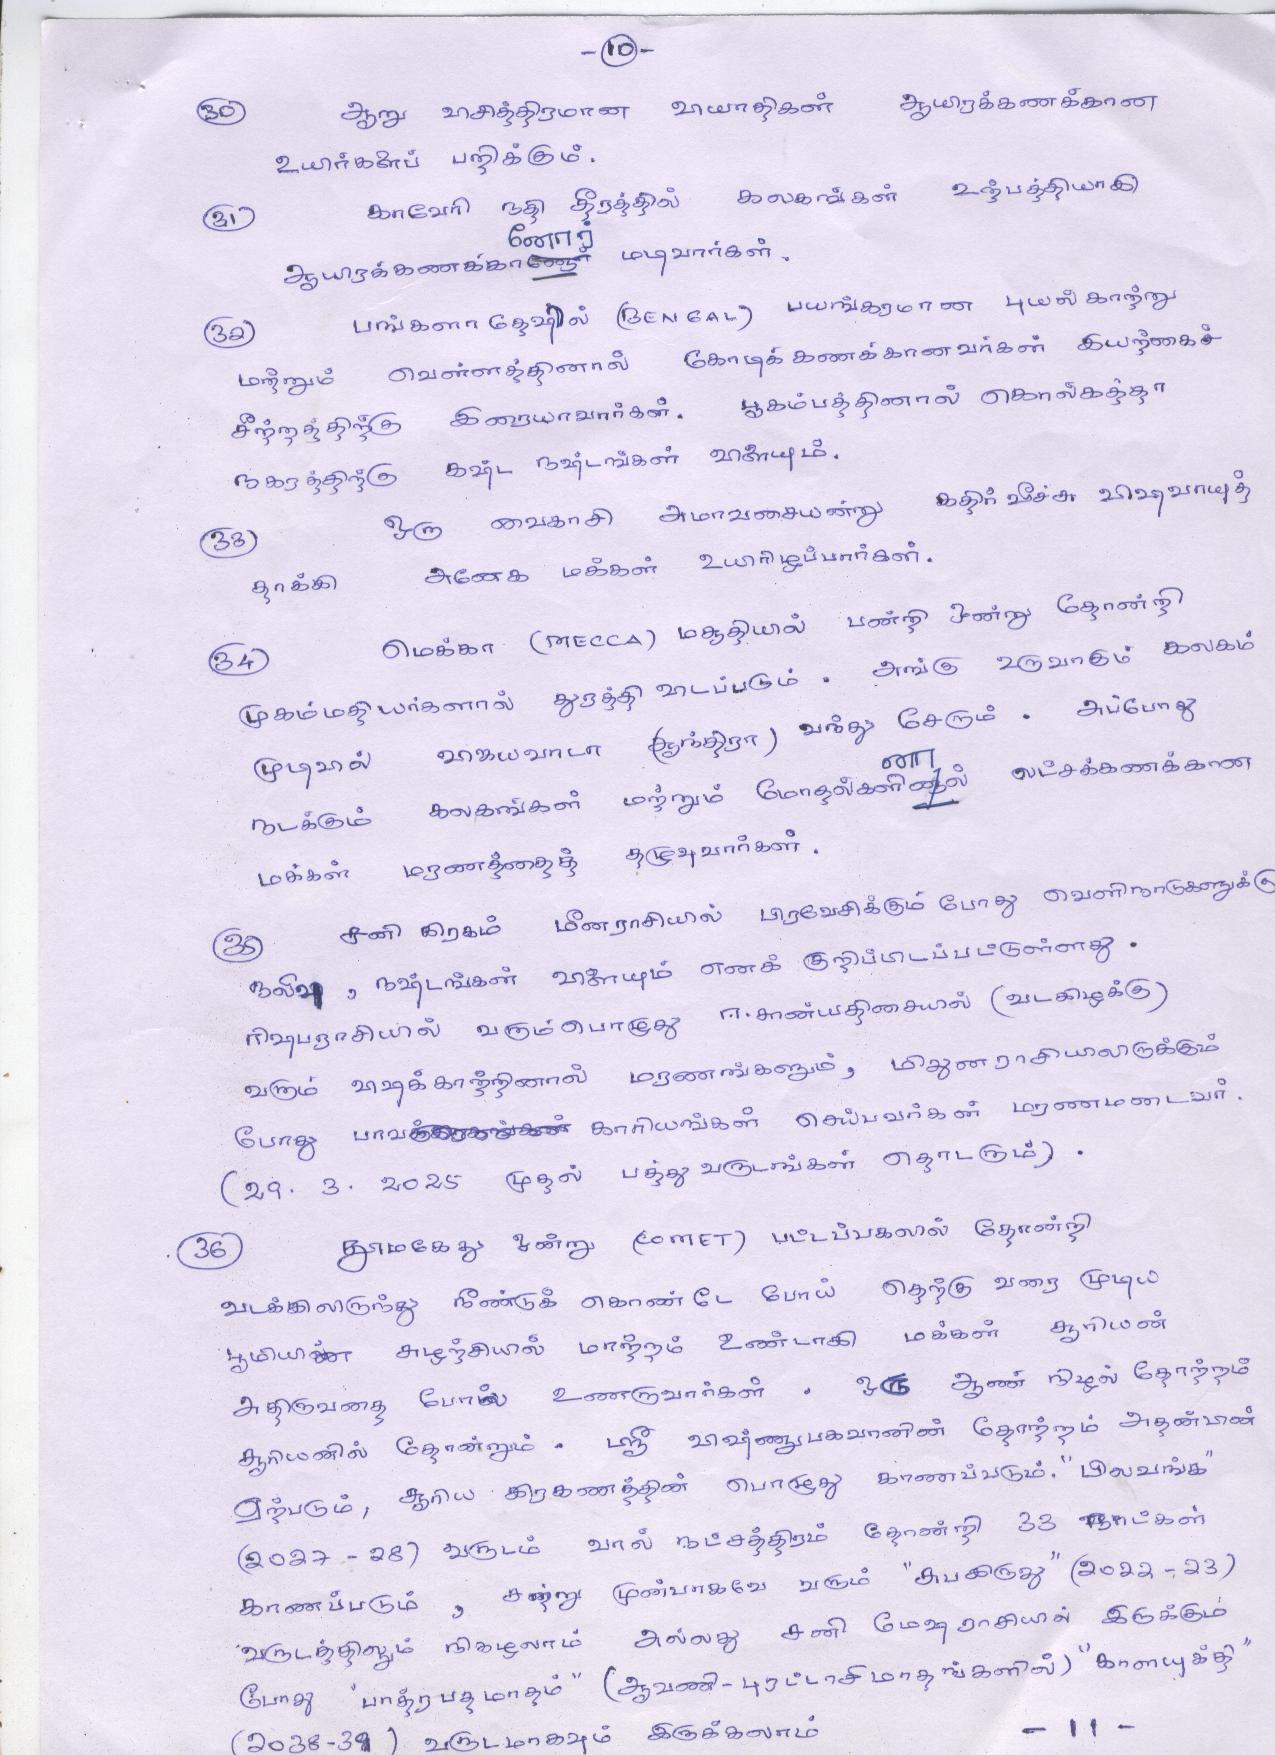 - 10 -
30 ஆறு விசித்திரமான வியாதிகள் ஆயிரக்கணக்கான
உயிர்களைப் பறிக்கும்.
31 காவேரி நதி தீரத்தில் கலகங்கள் உற்பத்தியாகி
ஆயிரக்கணக்கானோர் மடிவார்கள்.
32 பங்களாதேஷில் (BENGAL) பயங்கரமான புயல்காற்று
மற்றும் வெள்ளத்தினால் கோடிக்கணக்கானவர்கள் இயற்கைச்
சீற்றத்திற்கு இரையாவார்கள். பூகம்பத்தினால் கொல்கத்தா
நகரத்திற்கு கஷ்ட நஷ்டங்கள் விளையும்.
33 ஒரு வைகாசி அமாவசையன்று கதிர்வீச்சு விஷவாயுத்
தாக்கி அனேக மக்கள் உயிரிழப்பார்கள்.
34 மெக்கா (MECCA) மசூதியில் பன்றி ஒன்று தோன்றி
முகம்மதியர்களால் துரத்தி விடப்படும். அங்கு உருவாகும் கலகம்
முடிவில் விஜயவாடா (ஆந்திரா) வந்து சேரும். அப்போது
நடக்கும் கலகங்கள் மற்றும் மோதல்களினால் லட்சக்கணக்கான
மக்கள் மரணத்தைத் தழுவுவார்கள்.
35 சனி கிரகம் மீனராசியில் பிரவேசிக்கும்போது வெளிநாடுகளுக்கு
நலிவு, நஷ்டங்கள் விளையும் எனக் குறிப்பிடப்பட்டுள்ளது.
ரிஷபராசியில் வரும்பொழுது ஈ.சான்யதிசையில் (வடகிழக்கு)
வரும் விஷக்காற்றினால் மரணங்களும், மிதுனராசியிலிருக்கும்
போது பாவ காரியங்கள் செய்பவர்கள் மரணமடைவர்.
(29. 3. 2025 முதல் பத்து வருடங்கள் தொடரும்).
36 தூமகேது ஒன்று (COMET) பட்டப்பகலில் தோன்றி
வடக்கிலிருந்து நீண்டுக் கொண்டே போய் தெற்கு வரை முடிய
பூமியின் சுழற்சியில் மாற்றம் உண்டாகி மக்கள் சூரியன்
அதிருவதை போல உணருவார்கள். ஒரு ஆண் நிழல் தோற்றம்
சூரியனில் தோன்றும். ஸ்ரீ விஷ்ணுபகவானின் தோற்றம் அதன்பின்
ஏற்படும், சூரிய கிரகணத்தின் பொழுது காணப்படும். "பிலவங்க"
(2027 - 28) வருடம் வால் நட்சத்திரம் தோன்றி 33 நாட்கள்
காணப்படும், சற்று முன்பாகவே வரும் "சுபகிருது" (2022 - 23)
வருடத்திலும் நிகழலாம் அல்லது சனி மேஷராசியில் இருக்கும்
போது "பாத்ரபதமாதம்" (ஆவணி - புரட்டாசிமாதங்களில்) "காளயுக்தி"
(2038-39) வருடமாகவும் இருக்கலாம்
- 11 -